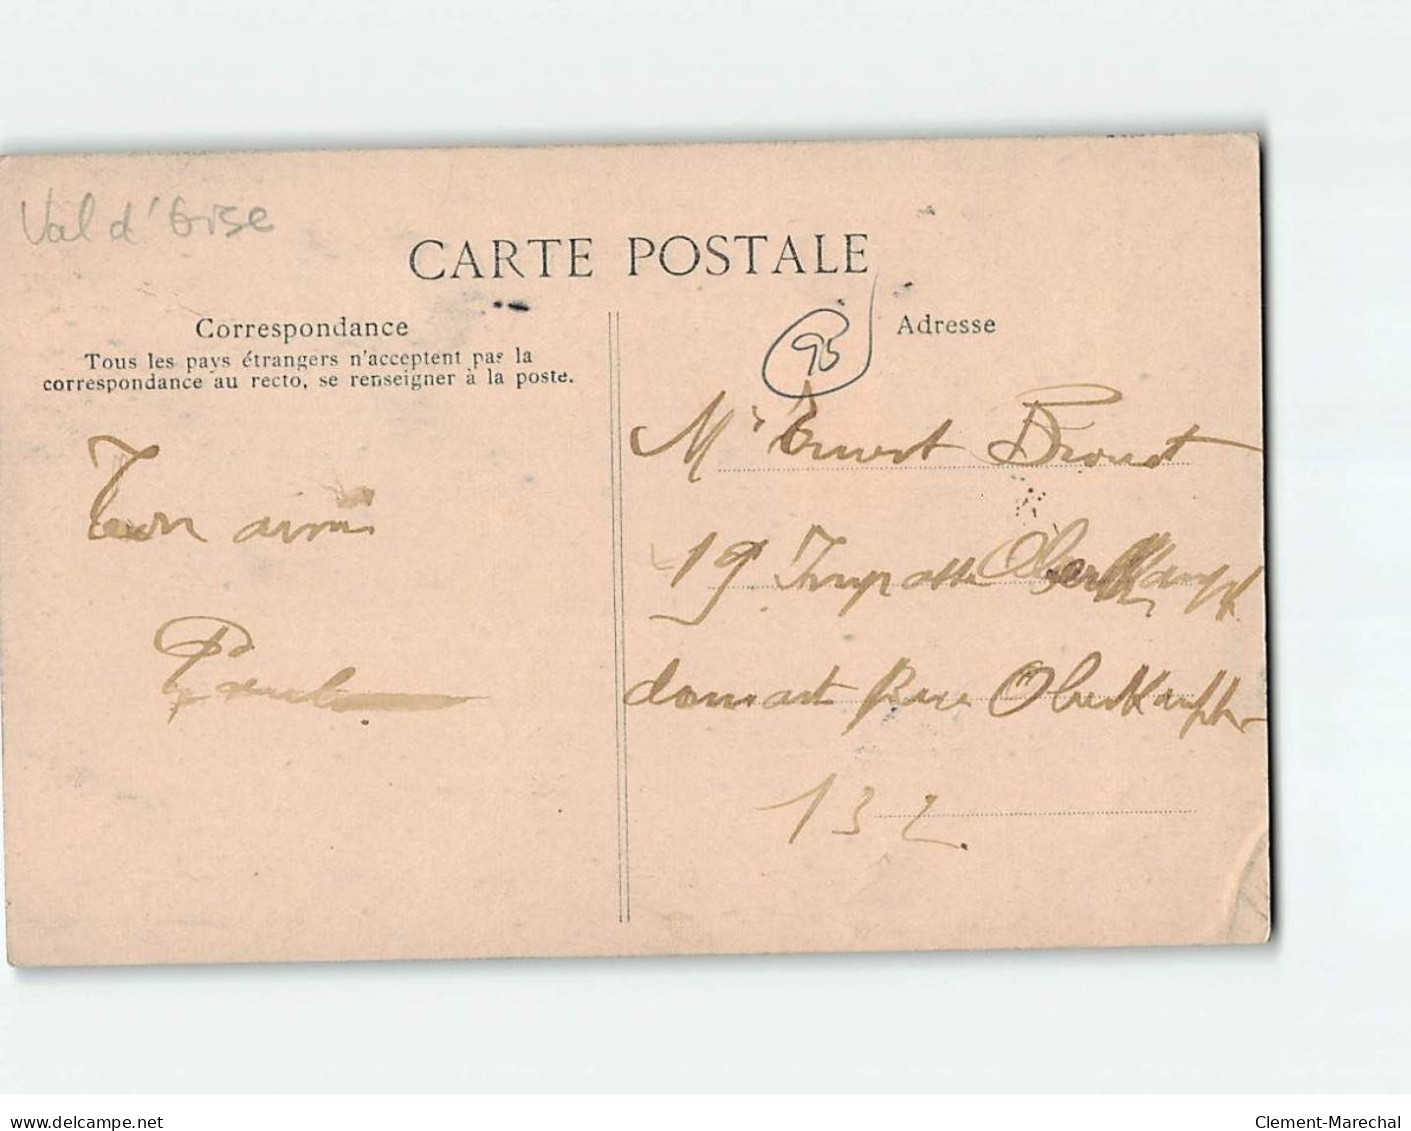 Val d'Oise
CARTE POSTALE
Correspondance
Tous les pays étrangers n'acceptent pas la
correspondance au recto, se renseigner à la poste.
Adresse
95
Mr Ernest
19 Impasse Oberkampf
Rue Oberkampf
132
Ton ami
Paul
delcampe.net
Clement-Marechal